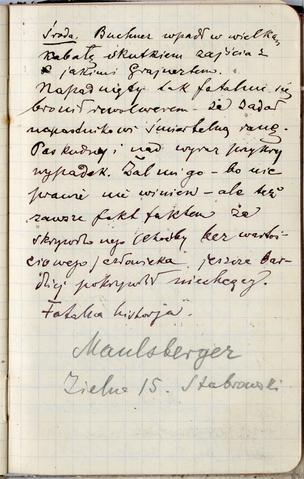 Środa. Buchner wpadł w wielką
kabałę skutkiem zajścia z
z jakimś Grajnertem.
Napadnięty tak fatalnie się
bronił rewolwerem – że zadał
napastnikowi śmiertelną ranę.
Paskudny i nad wyraz przykry
wypadek. Żal mi go – bo nic
prawie nie winien – ale też
zawsze fakt faktem że
skrzywdz nego (choćby bez wartoś-
ciowego) człowieka jeszcze bar-
dziej pokrzywdził niechcący.
Fatalna historja.
Maulsberger
Zielna 15. Stabrowski